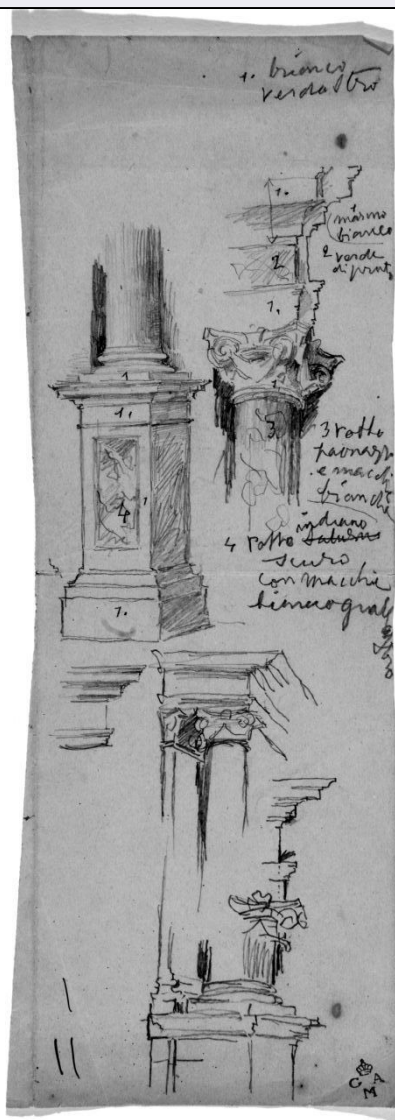 1. bianco
verdastro
1.
marmo
bianco
2
2 verde
di prato
1.
1
1.
1.
3
3 rotto
paonazzo
e macchi
bianche
4
1
indiano
4 rotto
scuro
con macchie
bianco
1.
G A
M